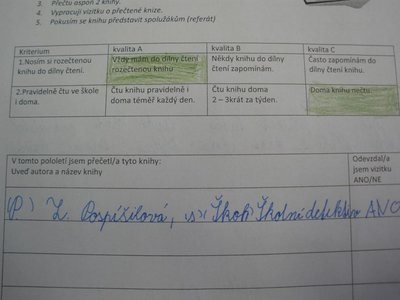 3. Přečtu aspoň 2 knihy.
4. Vypracuji vizitku o přečtené knize.
5. Pokusím se knihu představit spolužákům (referát)
Kriterium kvalita A kvalita B kvalita C
1.Nosím si rozečtenou knihu do dílny čtení. Vždy mám do dílny čtení rozečtenou knihu Někdy knihu do dílny čtení zapomínám. Často zapomínám do dílny čtení knihu.
2.Pravidelně čtu ve škole i doma. Čtu knihu pravidelně i doma téměř každý den. Čtu knihu doma 2 – 3krát za týden. Doma knihu nečtu.
V tomto pololetí jsem přečetl/a tyto knihy: Odevzdal/a
Uveď autora a název knihy jsem vizitku
ANO/NE
(P.) Z. Pospíšilová, Školní detektiv ANO